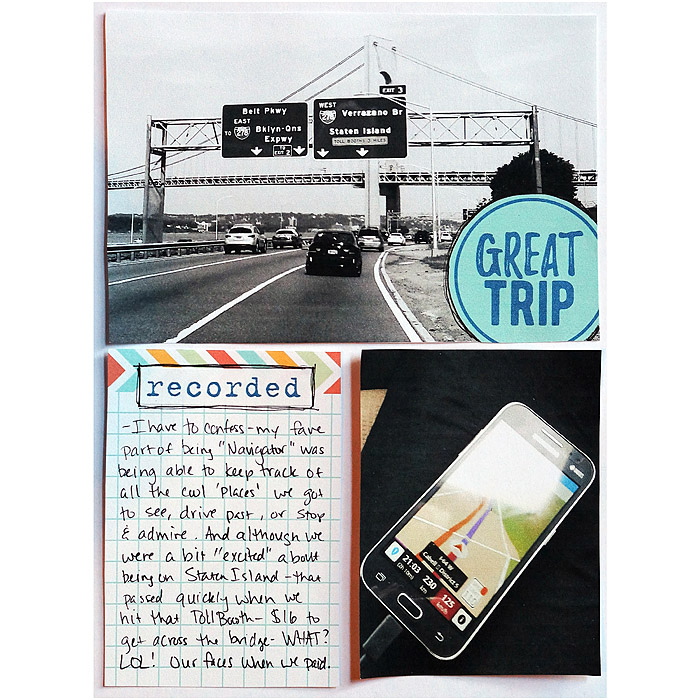 EXIT 3
Belt Pkwy
EAST
TO 278 Bklyn-Qns
Expwy
TO
EXIT 2
WEST
278 Verrazano Br
Staten Island
TOLL BOOTHS 3 MILES
GREAT
TRIP
recorded
-I have to confess-my fave
part of being "Navigator" was
being able to keep track of
all the cool 'places' we got
to see, drive past, or stop
& admire. And although we
were a bit "excited" about
being on Staten Island-that
passed quickly when we
hit that Toll Booth- $16 to
get across the bridge- WHAT?
LOL! Our faces when we paid.
I-64 W
Cabell - District 5
21:03
230
km
125